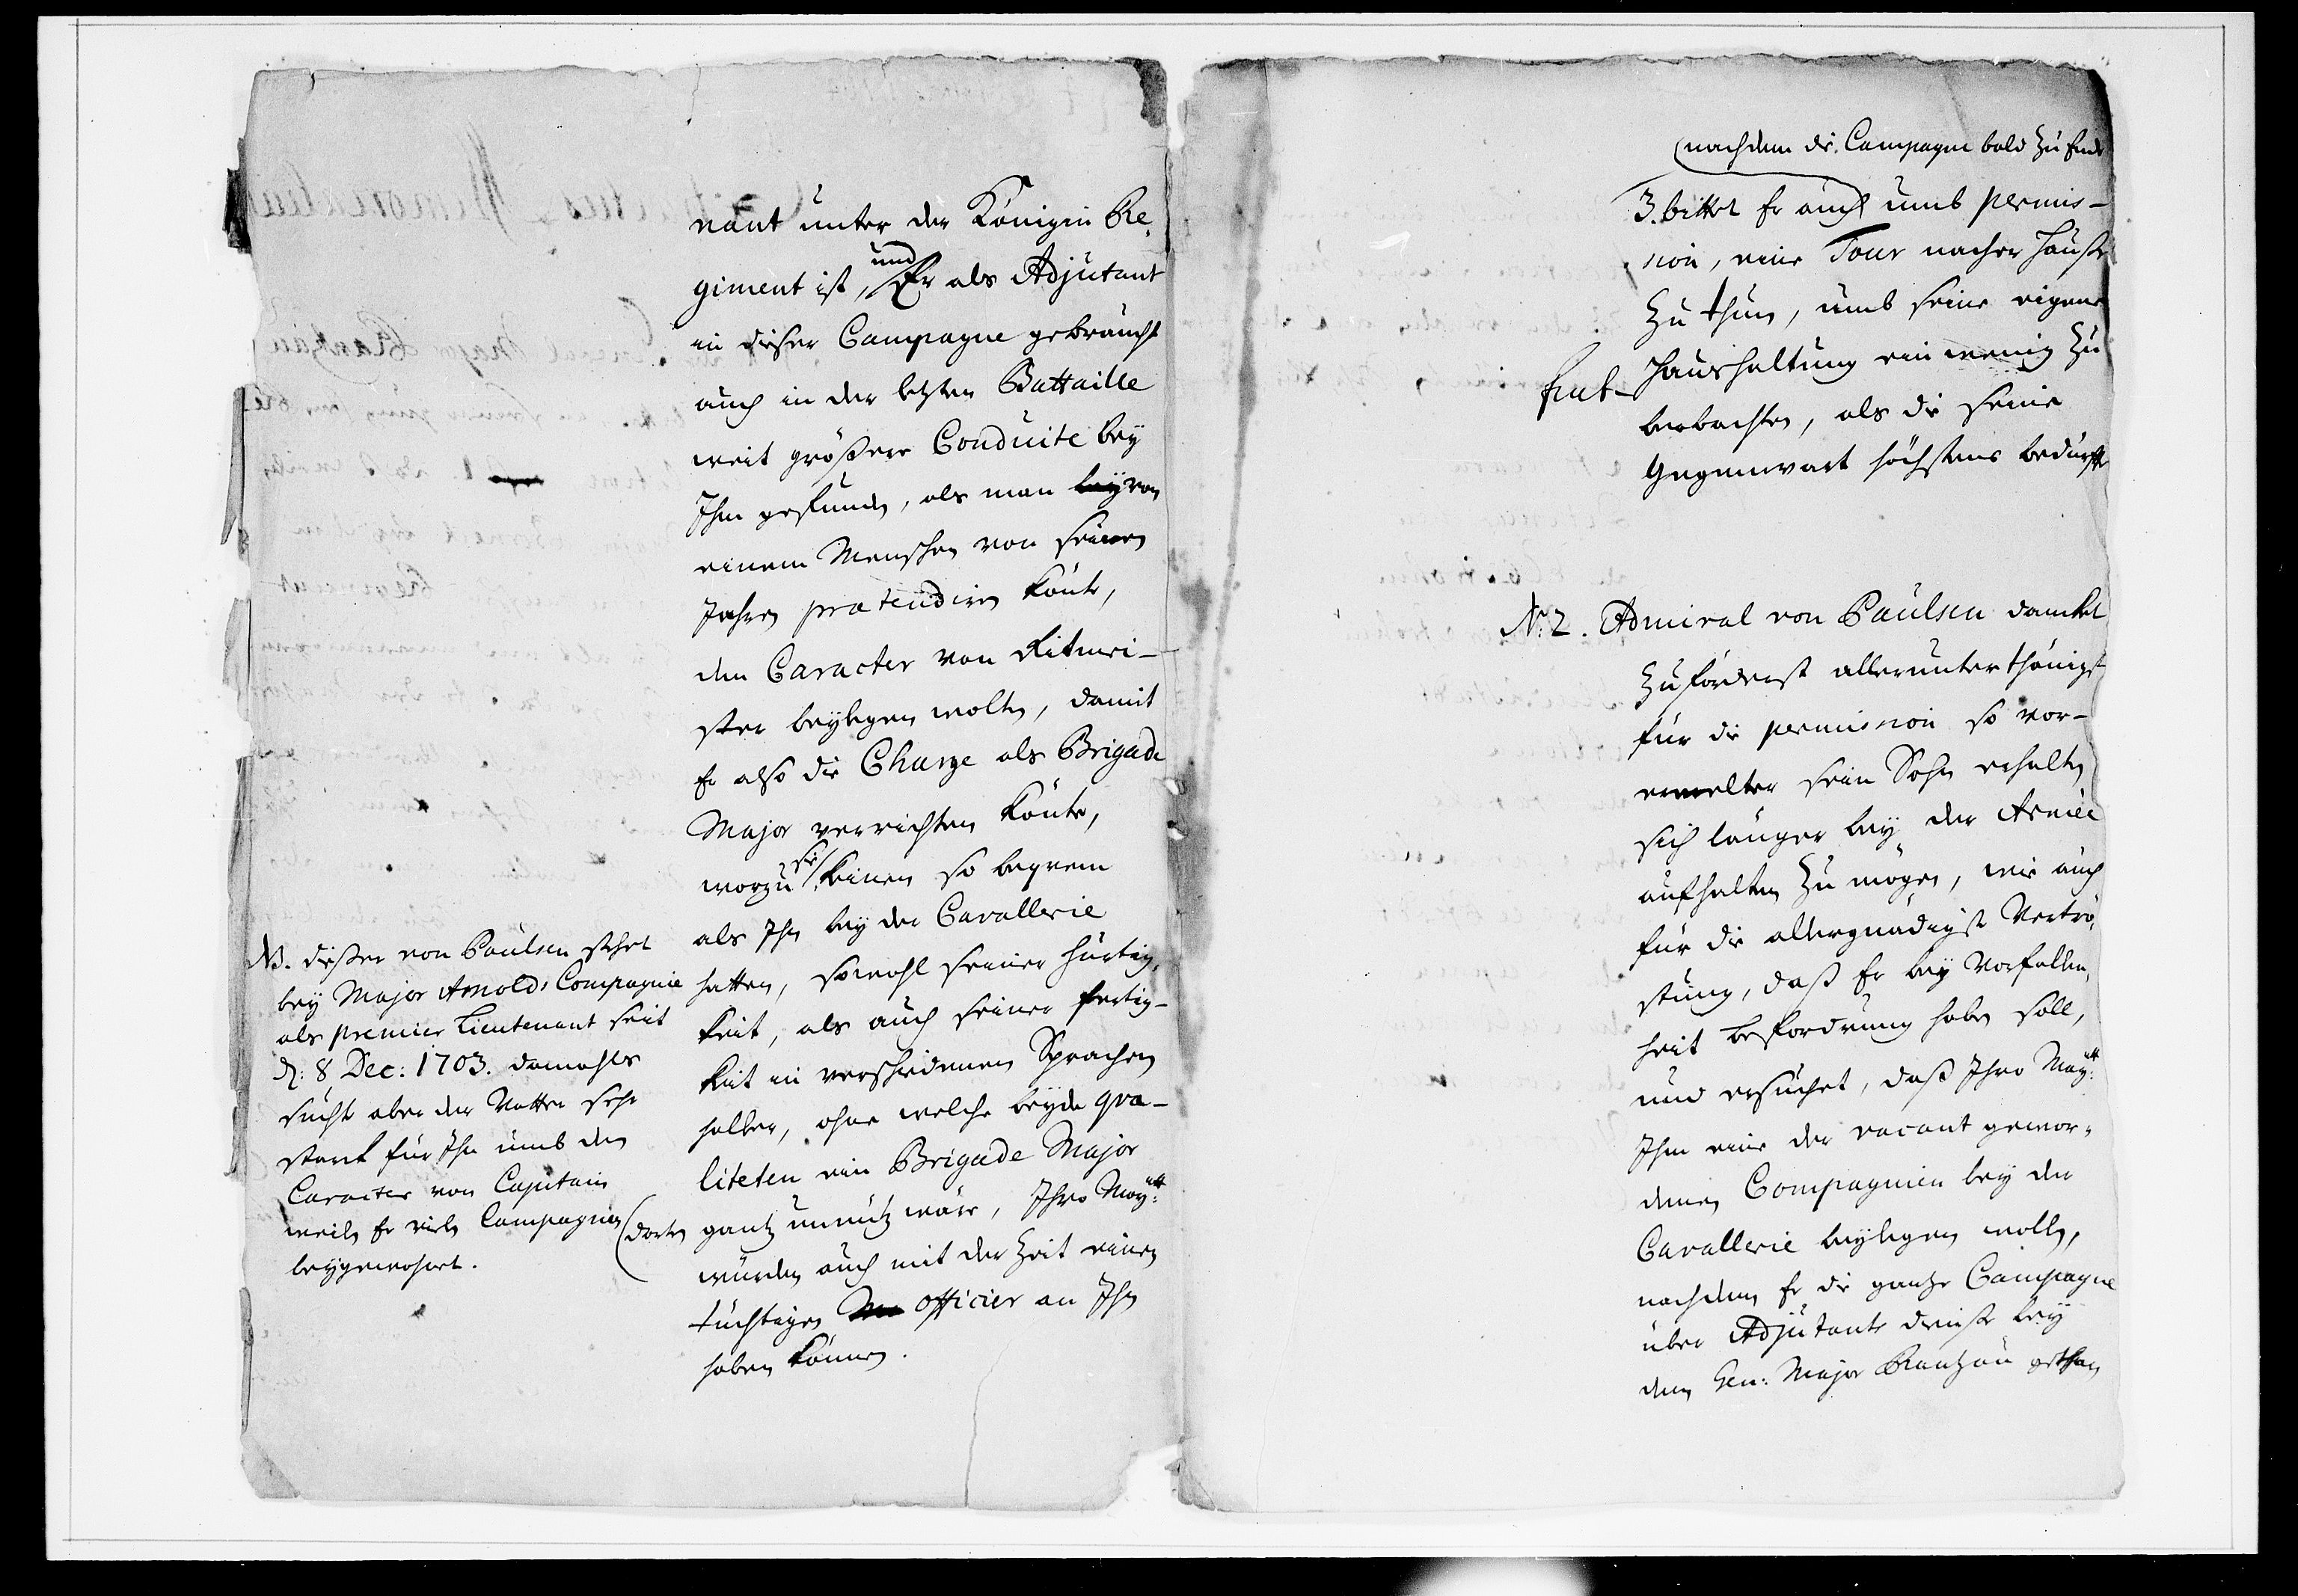 nant unter der Königin Re-
giment ist, und Er als Adjutant
in dieser Campagne gebraucht
auch in der letzten Battaille
weit größere Conduite bey
Ihm gefunden, als man bey von
einem Menschen von seinen
Jahren prætendiren könte,
den Caracter von Ritmei-
ster beylegen wolten, damit
Er also die Charge als Brigade
Major verrichten könte,
worzu sie keinen so beqvem
als Ihn bey der Cavallerie
hatten, sowohl seiner hurtig-
keit, als auch seiner fertig-
keit in verschiedenen Sprachen
halber, ohne welche beyde qva-
liteten ein Brigade Major
gantz unnütz wäre, Ihro Maytt:
würden auch mit der Zeit einen
tüchtigen officier an Ihn
haben können.
NB. dießer von Paulsen stehet
bey Major Arnolds Compagnie
als premier Lieutenant seit
d: 8 Dec: 1703. damahls
sucht aber der Vatter sehr
starck für Ihn umb den
Caracter von Capitain
weiln Er viele Campagnen (dorten
beygewohnet.
(nachdem die Campagne bald zu Ende
3. bittet Er auch umb permis-
sion, eine Tour nacher Hauße
zu thun, umb seine eigene
Haushaltung ein wenig zu
beobachten, als die seine
Gegenwart höchstens bedürffe
N: 2. Admiral von Paulsen dancket
zuforderst allerunterthänigst
für die permission so vor-
ermelter sein Sohn erhalten
sich länger bey der Armée
aufhalten zu mögen, wie auch
für die allergnädigste Vertrö-
stung, daß Er bey Vorfallen-
heit befordrung haben soll,
und ersuchet, daß Ihro Maytt:
Ihm eine der vacant gewor-
denen Compagnien bey der
Cavallerie beylegen wolle,
nachdem Er die gantze Campagne
über Adjutants dienste bey
dem Gen: Major Rantzau gethan